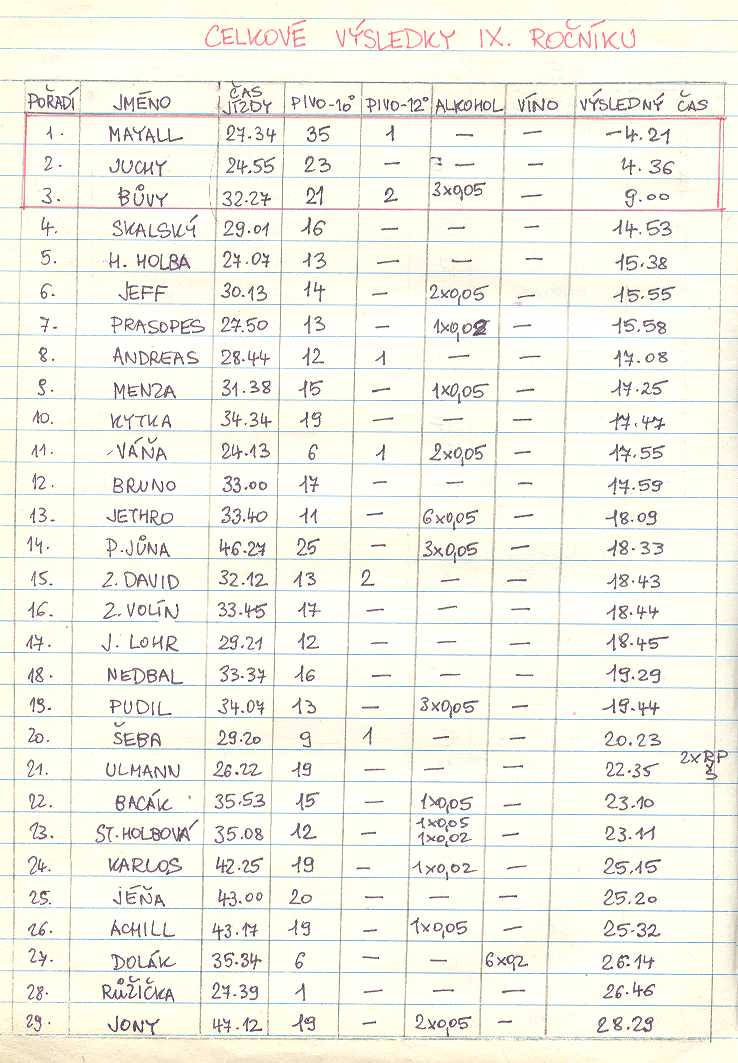 CELKOVÉ VÝSLEDKY IX. ROČNÍKU
POŘADÍ JMÉNO ČAS JÍZDY PIVO-10° PIVO-12° ALKOHOL VÍNO VÝSLEDNÝ ČAS
1. MAYALL 27.34 35 1 — — -4.21
2. JUCHY 24.55 23 — — — 4.36
3. BŮVY 32.27 21 2 3x0,05 — 9.00
4. SKALSKÝ 29.01 16 — — — 14.53
5. H. HOLBA 27.07 13 — — — 15.38
6. JEFF 30.13 14 — 2x0,05 — 15.55
7. PRASOPES 27.50 13 — 1x0,02 — 15.58
8. ANDREAS 28.44 12 1 — — 17.08
9. MENZA 31.38 15 — 1x0,05 — 17.25
10. KYTKA 34.34 19 — — — 17.47
11. VÁŇA 24.13 6 1 2x0,05 — 17.55
12. BRUNO 33.00 17 — — — 17.59
13. JETHRO 33.40 11 — 6x0,05 — 18.09
14. P. JŮNA 46.27 25 — 3x0,05 — 18.33
15. Z. DAVID 32.12 13 2 — — 18.43
16. Z. VOLÍN 33.45 17 — — — 18.44
17. J. LOHR 29.21 12 — — — 18.45
18. NEDBAL 33.37 16 — — — 19.29
19. PUDIL 34.07 13 — 3x0,05 — 19.44
20. ŠEBA 29.20 9 1 — — 20.23
21. ULMANN 26.22 19 — — — 22.35 2x
22. BACÁK 35.53 15 — 1x0,05 — 23.10
23. ST. HOLBOVÁ 35.08 12 — 1x0,05 1x0,02 — 23.11
24. KARLOS 42.25 19 — 1x0,02 — 25.15
25. JÉŇA 43.00 20 — — — 25.20
26. ACHILL 43.17 19 — 1x0,05 — 25.32
27. DOLÁK 35.34 6 — — 6x0,2 26.14
28. RŮŽIČKA 27.39 1 — — — 26.46
29. JONY 47.12 19 — 2x0,05 — 28.29